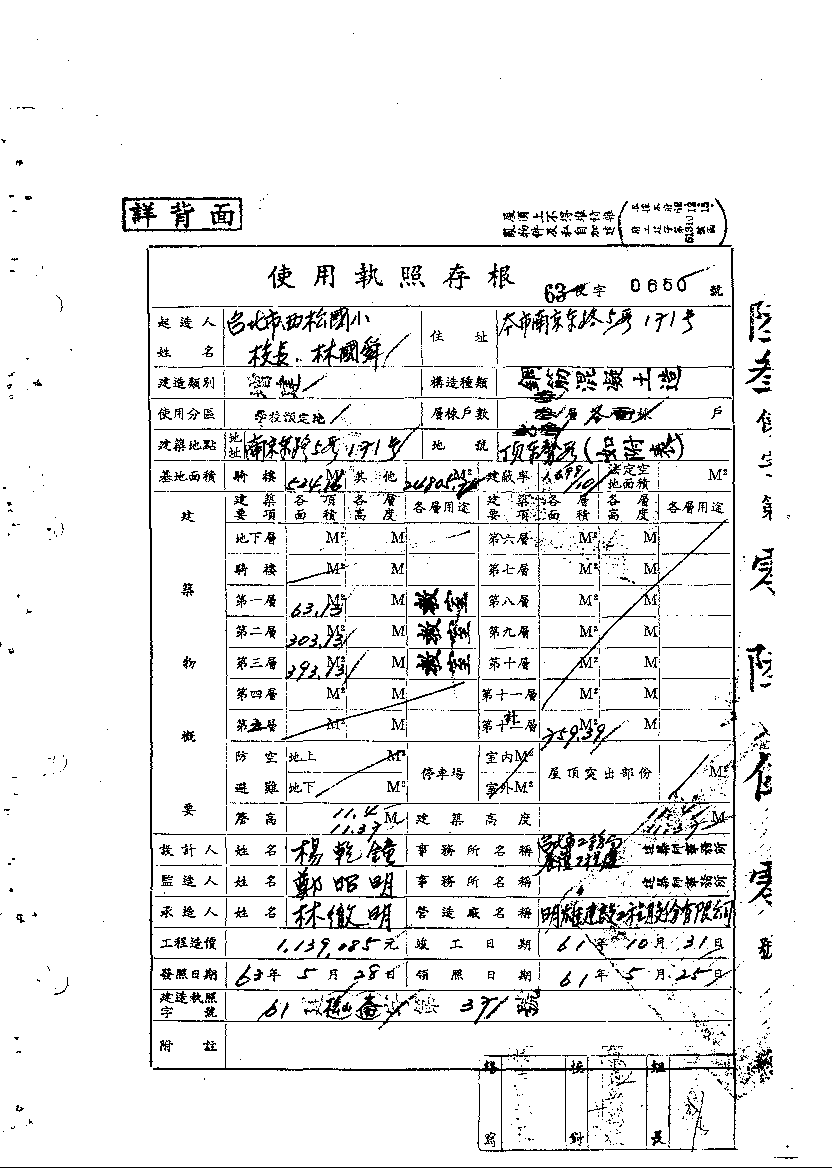 詳背面
屋頂上不得堆積雜
使用執照存根
63使字 0650 號
起造人
姓名
台北市西松國小
校長 林國舜
住址
本市南京東路5号171号
建造類別
構造種類 鋼筋混凝土造
使用分區 學校預定地
層棟戶數 層 棟 戶
建築地點 地址 南京東路5号171号
地號
基地面積 騎樓 524.16 M² 其他 M² 建蔽率 法定空地面積 M²
建築物概要
建築要項 各項面積 各層高度 各層用途 建築要項 各項面積 各層高度 各層用途
地下層 M² M 第六層 M² M
騎樓 M² M 第七層 M² M
第一層 63.13 M² M 教室 第八層 M² M
第二層 303.13 M² M 教室 第九層 M² M
第三層 393.13 M² M 教室 第十層 M² M
第四層 M² M 第十一層 M² M
第五層 M² M 計 759.39 M² M
防空 地上 M² 停車場 室內M² 屋頂突出部份 M²
避難 地下 室外M²
簷高 11.4 11.37 M 建築高度 11.4 11.37 M
設計人 姓名 楊乾鐘 事務所名稱 建築師事務所
監造人 姓名 鄭昭明 事務所名稱 建築師事務所
承造人 姓名 林徹明 營造廠名稱 明雄建設工程股份有限公司
工程造價 1,139,085元 竣工日期 61年10月31日
發照日期 63年5月28日 領照日期 61年5月25日
建造執照字號 61 松山 371 號
附註
繕寫 校對 組長